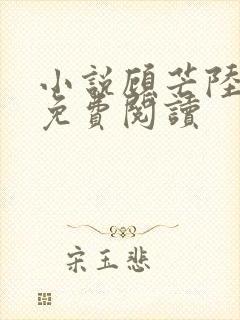 小說顧芒陸
免費閱讀
宋玉悲